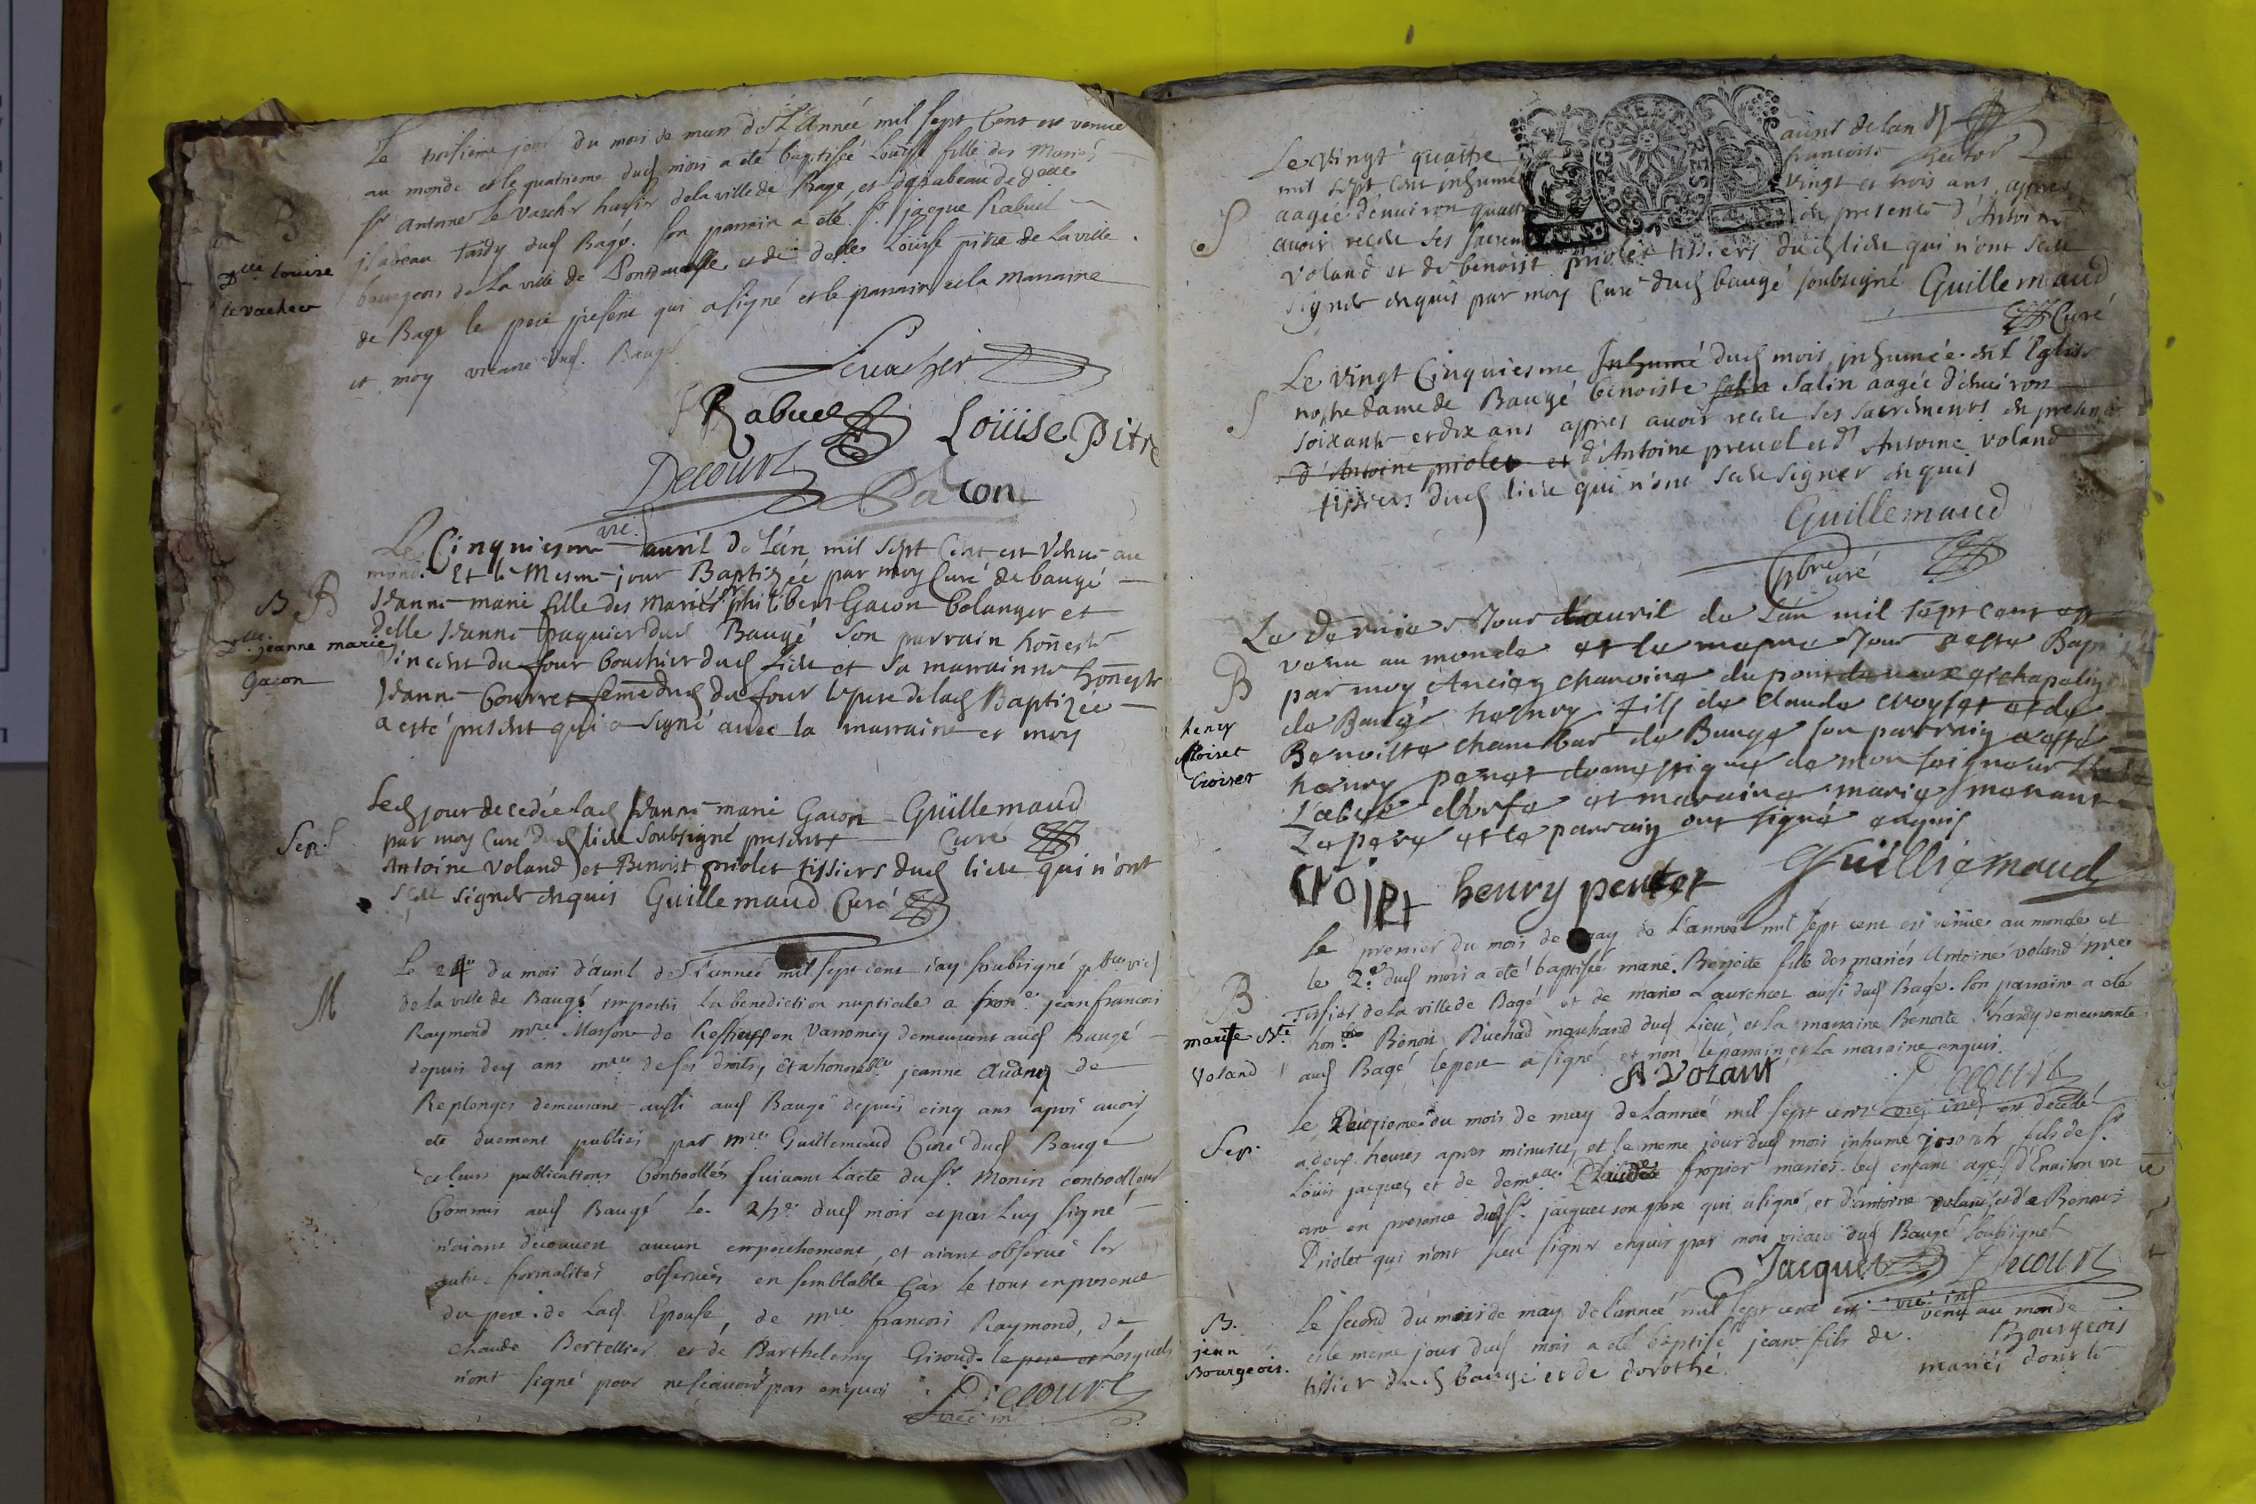 Le troisieme jour du mois de mars de L'Année mil sept Cent est venue
au monde et le quatrieme dud mois a eté baptisée Louise fille des Mariés
sr Antoine Le Vacher huissier de la ville de Bagé et
isabeau Tardy dud Bagé. son parrain a été sr jacque Rabuel
bourgeois de La ville de Pontdevaelle et de delle Louise pitre de La ville
de Bagé le pere present qui a signé et le parrain et la Marraine
et moy vicaire dud. Baugé
B
Dlle Louise
le vacher
Levacher
Rabuel Louise Pitre
Decourt
Gacon
vic.
Le Cinquiesme avril de L'an mil sept Cent est Venue au
monde Et le Mesme jour Baptizée par moy Curé de baugé
Jeanne marie fille des Mariés sr philibert Gacon bolanger et
delle Jeanne paquier dud Baugé son parrain honneste
Vincent du four bouchier dud lieu et sa marrainne honneste
Jeanne Courret femme dud du four le pere de lad Baptizée
a esté present qui a signé avec la marraine et moy
B B
Dlle jeanne marie
Gacon
Led jour decedée lad Jeanne marie Gacon Guillemaud
par moy Curé dud lieu soubsigné present Curé
Antoine Voland et Benoist priolet tissiers dud lieu qui n'ont
sceu signer enquis Guillemaud Curé
Sep.
Le 24e du mois d'avril de L'année mil sept cent j'ay soubsigné pbtre vic
de la ville de Baugé imparti la benediction nuptiale a honle jean francois
Raymond mre Masson de en Varromey demeurant aud Baugé
depuis dix ans mre de ses droits, et a honorable jeanne Audrey de
Replonges demeurant aussi aud Baugé depuis cinq ans après avoir
été duement publiés par mre Guillemaud Curé dud Baugé
et leurs publications Controollés suivant L'acte du sr Monin controolleur
Commis aud Baugé Le 24e dud mois et par Luy signé
n'aiant decouvert aucun empechement, et aiant observé les
autre formalités observées en semblable cas le tout en presence
du pere de Lad Epouse, de mre francois Raymond, de
Claude Bertellier et de Barthelemy Giroud. le pere et Lesquels
n'ont signé pour ne sçavoir pas enquis
M
Decourt
vice in
Le Vingt quatre avril de lan
mil sept cent inhumé francoise Rector
aagée d'environ quatre vingt et trois ans, appres
avoir receu ses sacrem en presence d'Antoine
Voland et de benoist priolet tissiers dud lieu qui n'ont sceu
signer enquis par moy Curé dud baugé soubsigné Guillemaud
Curé
S
Le Vingt Cinquiesme Inhumé dud mois, inhumée en L'Eglise
nostre dame de Baugé benoiste Salin Salin aagée d'environ
soixante et dix ans appres avoir receu ses sacrements en presence
d'Antoine priolet et d'Antoine preuel et d'Antoine voland
tissiers dud lieu qui n'ont sceu signer enquis
S
Guillemaud
pbre
Curé
Le dernier Jour d'avril de L'an mil sept cent est
venu au monde et le mesme Jour a esté Bapti
par moy Ancien chanoine du pont de vaux et chapelin
de Baugé henry fils de Claude Croyset et de
Benoiste chambar de Bauge son parrain a esté
henry penet domestique de mon seigneur
L'abbé d'urfe et maraine marie manant
Le pere et le parrain ont signé enquis
B
henry
Ploiret
Croiset
Croiset henry pentet Guilliemaud
Le premier du mois de may de L'année mil sept cent est venue au monde et
le 2e dud mois a eté baptisée marie Benoite fille des mariés Antoine Voland mre
Tissier de la ville de Bagé et de marie Laurencet aussi dud Bage. son parrain a eté
hon.ble Benoit Ruchad marchand dud Lieu, et la marraine Benoite Tardy demeurante
aud Bagé Le pere a signé et non le parrain et La maraine enquis.
B
marie Bte
Voland
A VoLant
Decourt
vic ind
Le Deuxieme du mois de may de L'année mil sept cent est decedé
a deux heures apres minuit, et le meme jour dud mois inhumé joseph fils de sr
Louis jacquet et de demelle Claudee fropier mariés. led enfant agé d'Environ un
ans en presence dud sr. jacquet son pere qui a signé, et d'antoine voland et de Benoit
Priolet qui n'ont sceu signer enquis par moi vicaire dud Baugé soubsigné
Sep.
Jacquet Decourt
vic. ind
Le second du mois de may de L'année mil sept cent est venu au monde
et le meme jour dud mois a eté baptisé jean fils de Bourgeois
tissier dud baugé et de dorothé mariés dont le
B.
jean
Bourgeois.